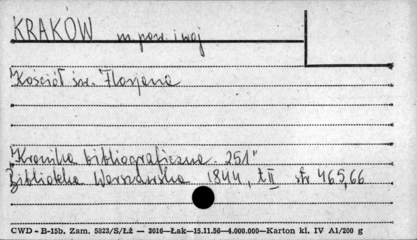 KRAKÓW m. pow. i woj
Kościół św. Florjana
"Kronika bibliograficzna. 251"
Biblioteka Warszawska 1844, t II str 465,66
CWD - B-15b. Zam. 5823/S/ŁŻ — 3016—Łak—15.11.56—4.000.000—Karton kl. IV A1/200 g